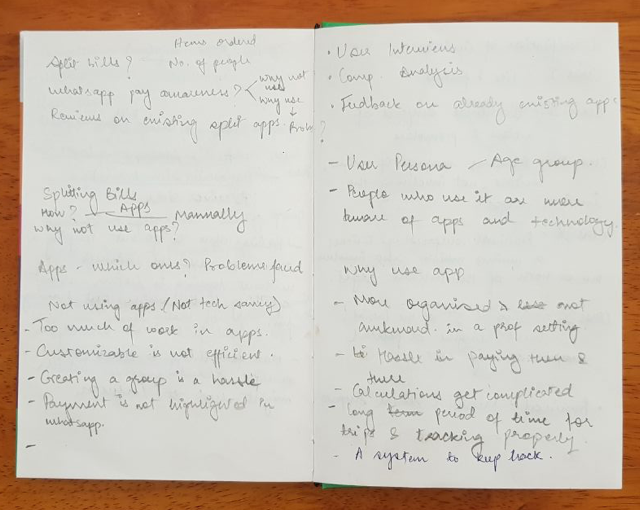 Items ordered
Split bills? No. of people
whatsapp pay awareness? why not use
why use
Reviews on existing split apps. Prob
?
Splitting Bills
How? Apps Manually
why not use apps?
Apps - which ones? Problems faced
Not using apps. (Not tech savvy)
- Too much of work in apps.
- Customizable is not efficient.
- Creating a group is a hassle
- Payment is not highlighted in
whatsapp.
-
• User Interviews
• Comp. analysis
• Feedback on already existing apps
- User Persona - Age group.
- People who use it are more
aware of apps and technology.
Why use app
- More organised & less not
awkward. in a prof setting
- Hassle in paying then &
there
- Calculations get complicated
- long term period of time for
trips & tracking properly.
- A system to keep track.